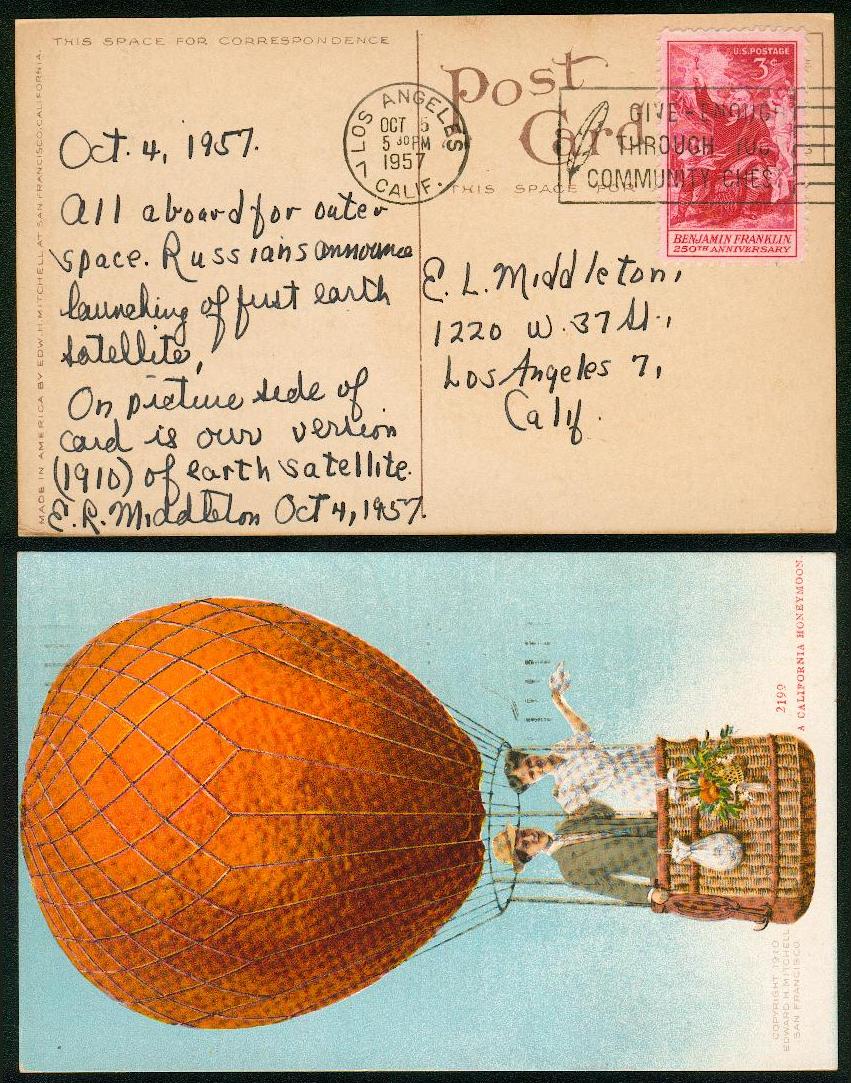 THIS SPACE FOR CORRESPONDENCE
MADE IN AMERICA BY EDW. H. MITCHELL AT SAN FRANCISCO, CALIFORNIA.
Oct. 4, 1957.
All aboard for outer
space. Russians announce
launching of first earth
satellite.
On picture side of
card is our version
(1910) of earth satellite.
E. R. Middleton Oct 4, 1957.
Post
Card
THIS SPACE FOR
LOS ANGELES
OCT 5
5 30 PM
1957
7 CALIF.
GIVE-ENOUG
THROUGH YOU
COMMUNITY CHES
U.S. POSTAGE
3¢
BENJAMIN FRANKLIN
250TH ANNIVERSARY
E. L. Middleton,
1220 W. 37 St.,
Los Angeles 7,
Calif.
2199
A CALIFORNIA HONEYMOON.
COPYRIGHT 1910
EDWARD H. MITCHELL
SAN FRANCISCO